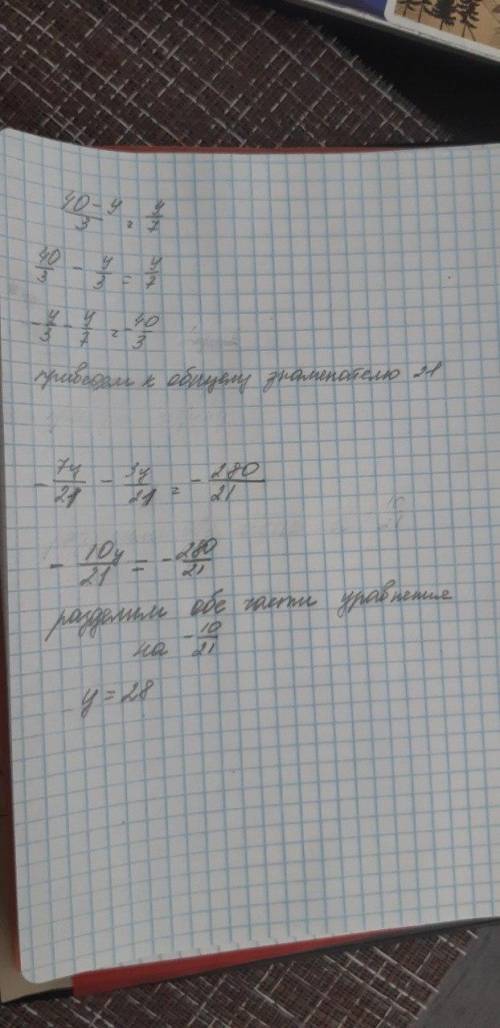 (40 - y)/3 = y/7
40/3 - y/3 = y/7
- y/3 - y/7 = - 40/3
приведем к общему знаменателю 21
- 7y/21 - 3y/21 = - 280/21
- 10y/21 = - 280/21
разделим обе части уравнения
на - 10/21
y = 28